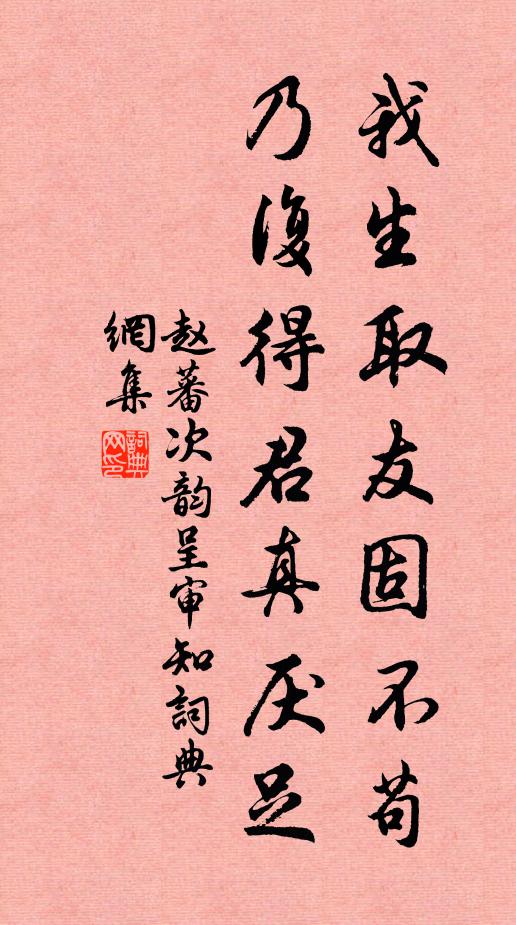 我生取友固不苟
乃復得君真厌足
赵蕃次韵呈审知詞典
網集
詞典網印